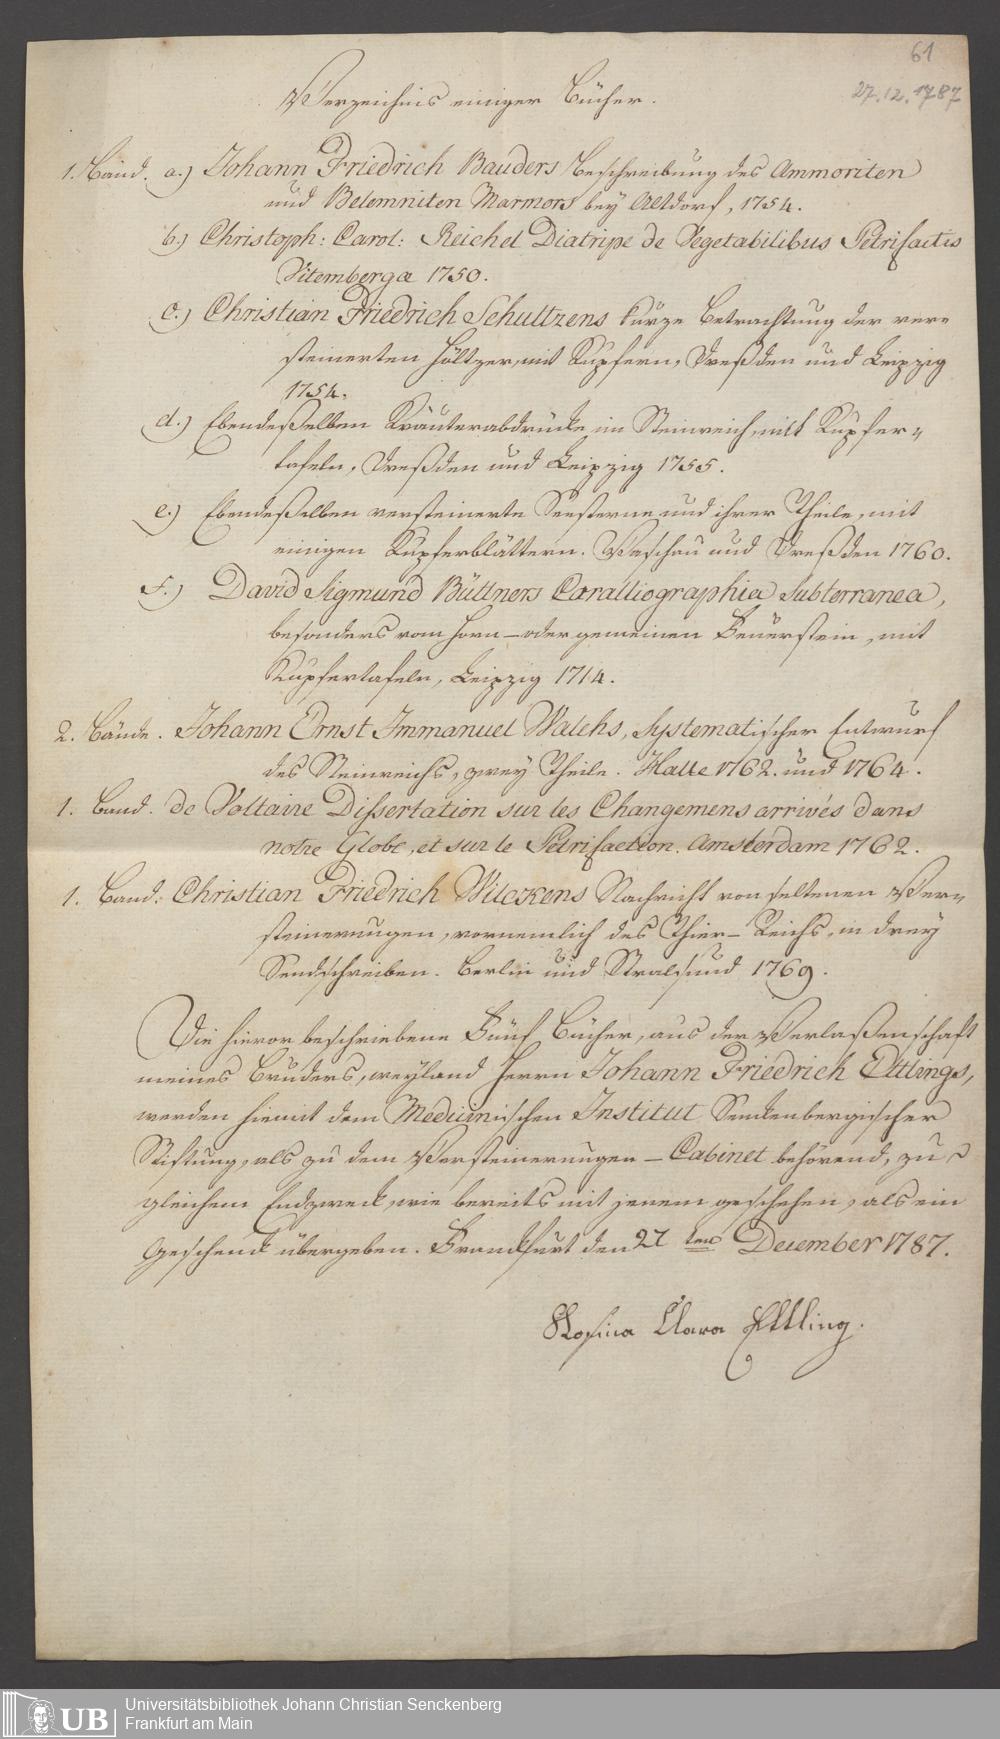 61
27.12.1787
Verzeichnis einiger Bücher.
1. Band. a.) Johann Friedrich Bauders Beschreibung des Ammoniten
und Belemniten Marmors bey Altdorf, 1754.
b.) Christoph: Carol: Reichel Diatripe de Vegetabilibus Petrifactis
Vitembergæ 1750.
c.) Christian Friedrich Schultzens kurze Betrachtung der ver=
steinerten Höltzer, mit Kupfern, Dreßden und Leipzig
1754.
d.) Ebendeßelben Kräuterabdrücke im Steinreich, mit Kupfer=
tafeln, Dreßden und Leipzig 1755.
e.) Ebendeßelben versteinerte Seesterne und ihrer Theile, mit
einigen Kupferblättern. Waschau und Dreßden 1760.
f.) David Sigmund Büttners Coralliographia Subterranea,
besonders vom Horn- oder gemeinen Feuerstein, mit
Kupfertafeln, Leipzig 1714.
2. Bände. Johann Ernst Immanuel Walchs, Systematischer Entwurf
des Steinreichs, zwey Theile. Halle 1762. und 1764.
1. Band. de Voltaire Dissertation sur les Changemens arrivés dans
notre Globe, et sur le Petrifaction. Amsterdam 1762.
1. Band: Christian Friedrich Wilckens Nachricht von seltenen Ver=
steinerungen, vornemlich des Thier-Reichs, in drey
Sendschreiben. Berlin und Stralsund 1769.
Die hievor beschriebene Fünf Bücher, aus der Verlaßenschaft
meines Bruders, weyland Herrn Johann Friedrich Ettlings,
werden hiemit dem Medicinischen Institut Senckenbergischer
Stiftung, als zu dem Versteinerungen-Cabinet behörend, zu
gleichem Endzweck, wie bereits mit jenem geschehen, als ein
Geschenck übergeben. Franckfurt den 27ten December 1787.
Rosina Clara Ettling.
UB
Universitätsbibliothek Johann Christian Senckenberg
Frankfurt am Main